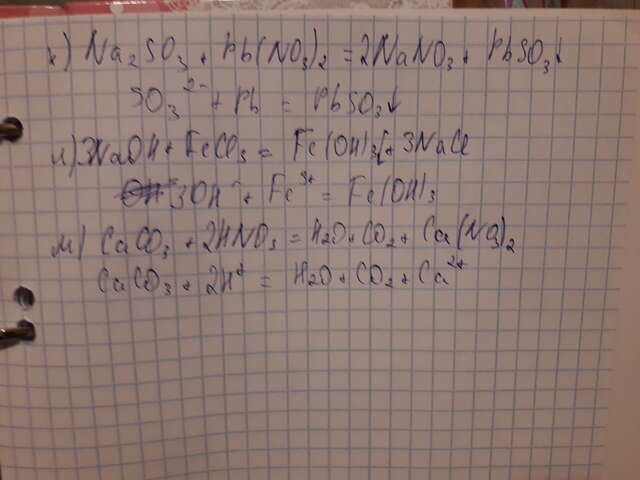 к) Na2SO3 + Pb(NO3)2 = 2NaNO3 + PbSO3↓
SO3 2- + Pb = PbSO3↓
л) 3NaOH + FeCl3 = Fe(OH)3↓ + 3NaCl
3OH- + Fe3+ = Fe(OH)3
м) CaCO3 + 2HNO3 = H2O + CO2 + Ca(NO3)2
CaCO3 + 2H+ = H2O + CO2 + Ca2+